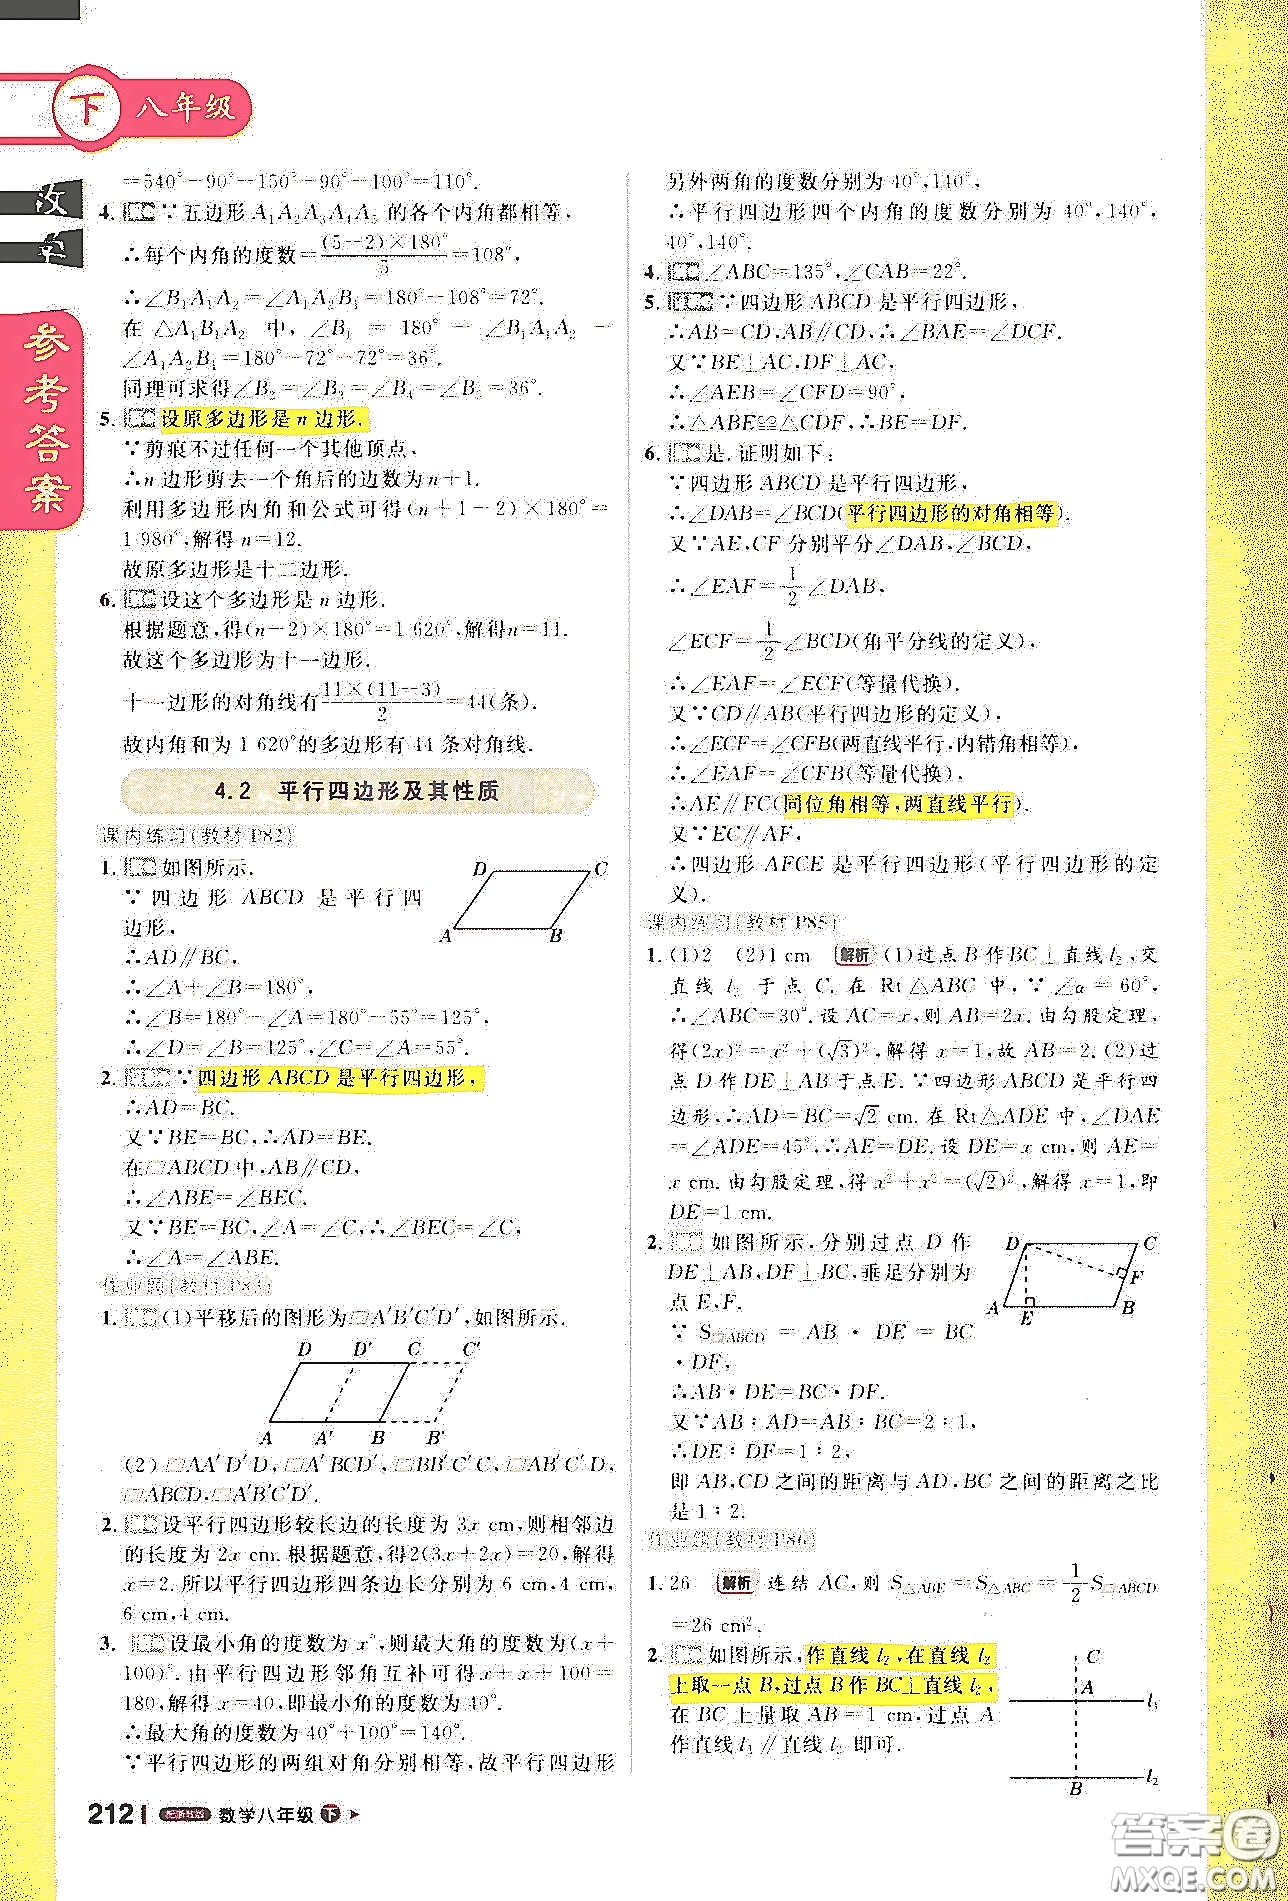 下 八年级
参考答案
=540°-90°-150°-90°-100°=110°.
4. ∵五边形 A₁A₂A₃A₄A₅ 的各个内角都相等,
∴每个内角的度数=(5-2)×180°/5=108°,
∴∠B₁A₁A₂=∠B₁A₂A₁=180°-108°=72°.
在 △A₁B₁A₂ 中,∠B₁ = 180° - ∠B₁A₁A₂ -
∠A₁A₂B₁=180°-72°-72°=36°.
同理可求得∠B₂=∠B₃=∠B₄=∠B₅=36°.
5. 设原多边形是 n 边形.
∵剪痕不过任何一个其他顶点,
∴n 边形剪去一个角后的边数为 n+1.
利用多边形内角和公式可得(n+1-2)×180°=
1 980°,解得 n=12.
故原多边形是十二边形.
6. 设这个多边形是 n 边形.
根据题意,得(n-2)×180°=1 620°,解得n=11.
故这个多边形为十一边形.
十一边形的对角线有11×(11-3)/2=44(条).
故内角和为 1 620°的多边形有 44 条对角线.
4.2 平行四边形及其性质
课内练习(教材 P82)
1. 如图所示.
∵四边形 ABCD 是平行四
边形,
∴AD∥BC,
∴∠A+∠B=180°,
∴∠B=180°-∠A=180°-55°=125°,
∴∠D=∠B=125°,∠C=∠A=55°.
D C
A B
2. ∵四边形 ABCD 是平行四边形,
∴AD=BC.
又∵BE=BC,∴AD=BE.
在▱ABCD 中,AB∥CD,
∴∠ABE=∠BEC.
又∵BE=BC,∠A=∠C,∴∠BEC=∠C,
∴∠A=∠ABE.
作业题(教材 P83)
1. (1)平移后的图形为▱A′B′C′D′,如图所示.
D D′ C C′
A A′ B B′
(2)▱AA′D′D,▱A′BCD′,▱BB′C′C,▱ABCD,▱A′B′C′D′.
2. 设平行四边形较长边的长度为 3x cm,则相邻边
的长度为 2x cm.根据题意,得2(3x+2x)=20,解得
x=2.所以平行四边形四条边长分别为 6 cm,4 cm,
6 cm,4 cm.
3. 设最小角的度数为 x°,则最大角的度数为(x+
100)°.由平行四边形邻角互补可得 x+x+100=
180,解得 x=40,即最小角的度数为 40°.
∴最大角的度数为 40°+100°=140°.
∵平行四边形的两组对角分别相等,故平行四边形
另外两角的度数分别为 40°,140°,
∴平行四边形四个内角的度数分别为 40°,140°,
40°,140°.
4. ∠ABC=135°,∠CAB=22°.
5. ∵四边形 ABCD 是平行四边形,
∴AB=CD,AB∥CD,∴∠BAE=∠DCF.
又∵BE⊥AC,DF⊥AC,
∴∠AEB=∠CFD=90°,
∴△ABE≌△CDF,∴BE=DF.
6. 是.证明如下:
∵四边形 ABCD 是平行四边形,
∴∠DAB=∠BCD(平行四边形的对角相等).
又∵AE,CF 分别平分∠DAB,∠BCD,
∴∠EAF=1/2∠DAB,
∠ECF=1/2∠BCD(角平分线的定义),
∴∠EAF=∠ECF(等量代换).
又∵CD∥AB(平行四边形的定义),
∴∠ECF=∠CFB(两直线平行,内错角相等),
∴∠EAF=∠CFB(等量代换).
∴AE∥FC(同位角相等,两直线平行).
又∵EC∥AF,
∴四边形 AFCE 是平行四边形(平行四边形的定
义).
课内练习(教材 P85)
1. (1)2 (2)1 cm 解析 (1)过点 B 作 BC⊥直线 l₂,交
直线 l₂ 于点 C.在 Rt△ABC 中,∵∠α=60°,
∴∠ABC=30°.设 AC=x,则 AB=2x.由勾股定理,
得(2x)²=x²+(√3)²,解得 x=1,故 AB=2.(2)过
点 D 作 DE⊥AB 于点 E.∵四边形 ABCD 是平行四
边形,∴AD=BC=√2 cm.在 Rt△ADE 中,∠DAE
=∠ADE=45°,∴AE=DE.设 DE=x cm,则 AE=
x cm.由勾股定理,得 x²+x²=(√2)²,解得 x=1,即
DE=1 cm.
2. 如图所示,分别过点 D 作
DE⊥AB,DF⊥BC,垂足分别为
点 E,F.
∵ S▱ABCD = AB · DE = BC
·DF,
∴AB·DE=BC·DF.
又∵AB∶AD=AB∶BC=2∶1,
∴DE∶DF=1∶2,
即 AB,CD 之间的距离与 AD,BC 之间的距离之比
是 1∶2.
D C
F
A E B
作业题(教材 P86)
1. 26 解析 连结 AC,则 S△ABE=S△ABC=1/2 S▱ABCD
=26 cm².
2. 如图所示,作直线 l₂,在直线 l₂
上取一点 B,过点 B 作 BC⊥直线 l₂,
在 BC 上量取 AB=1 cm,过点 A
作直线 l₁∥直线 l₂ 即可.
C
A
l₁
B
l₂
212 数学八年级 下
答案卷
MXQE.COM